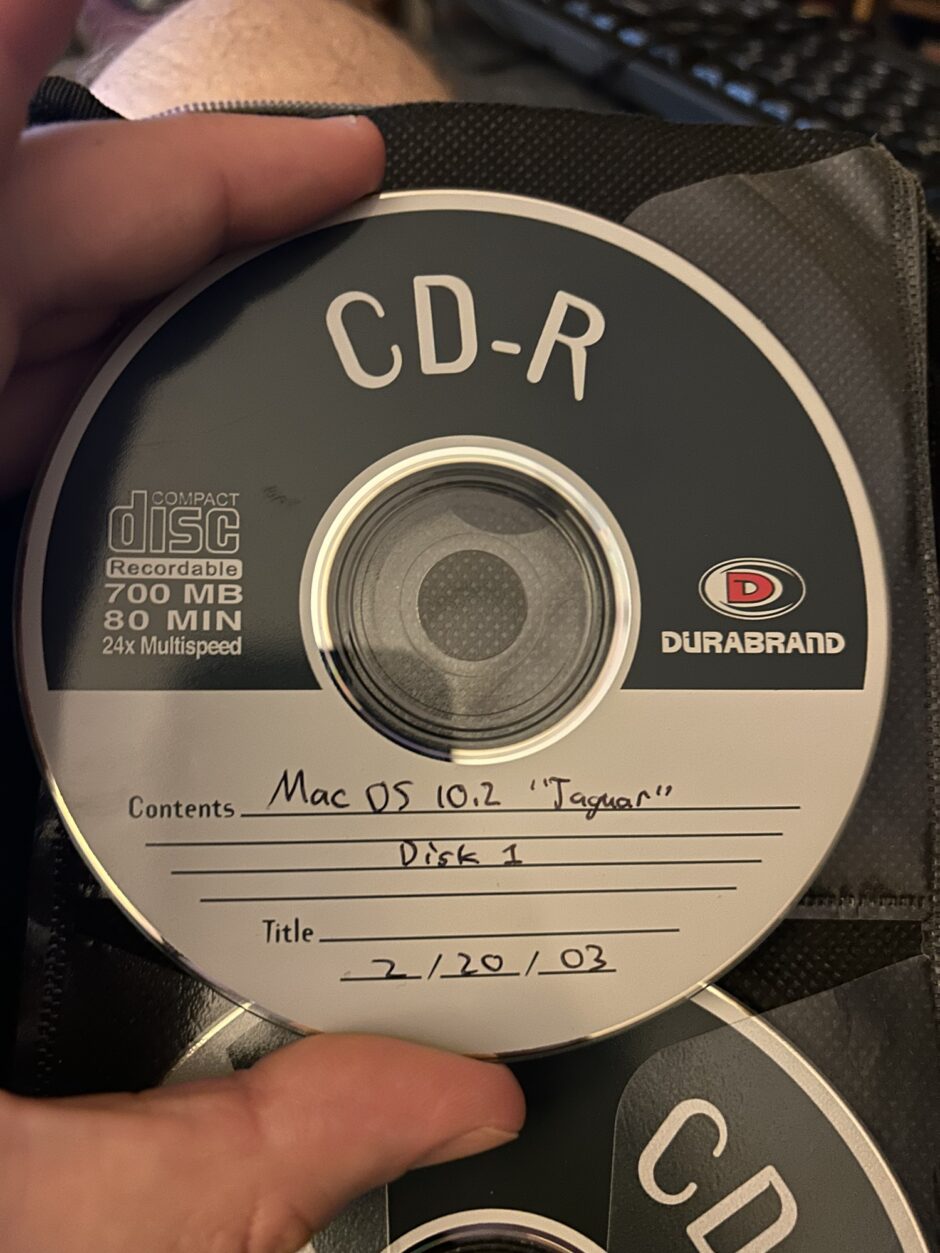 CD-R
COMPACT
disc
Recordable
700 MB
80 MIN
24x Multispeed
D
DURABRAND
Contents Mac OS 10.2 "Jaguar"
Disk 1
Title
2/20/03
CD